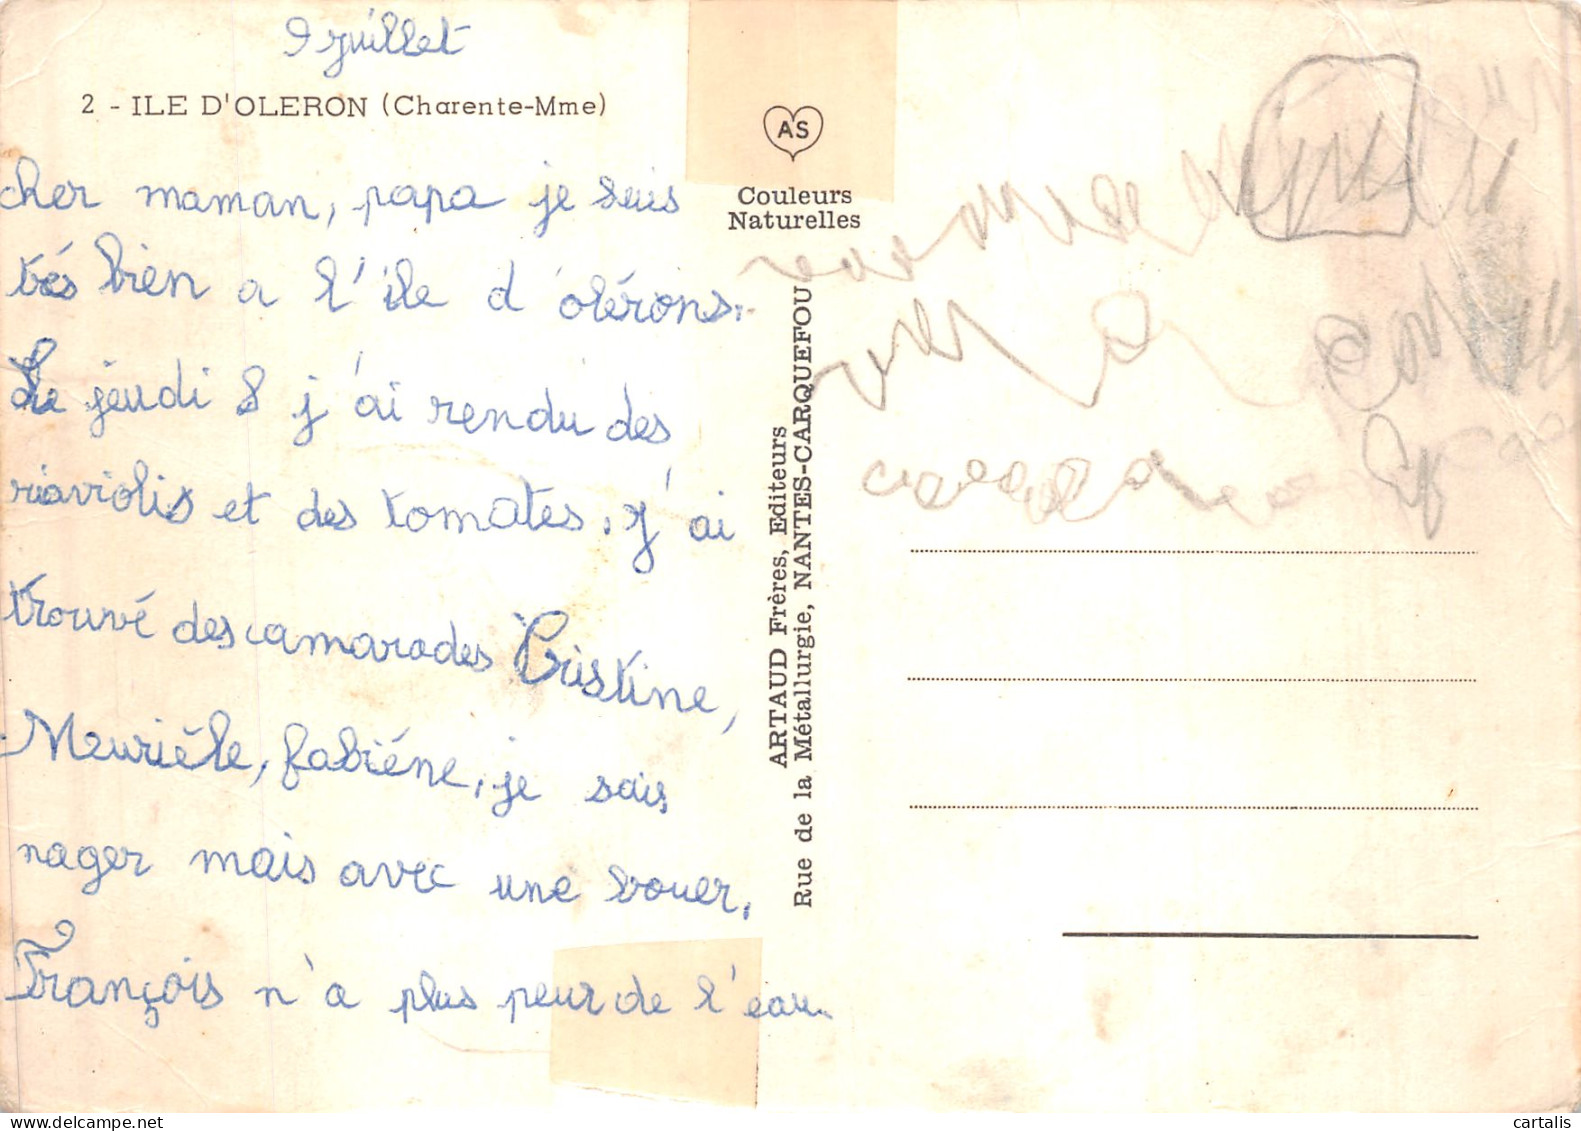 9 juillet
2 - ILE D'OLERON (Charente-Mme)
cher maman, papa je suis
trés bien a l'ile d'olérons.
Le jeudi 8 j'ai rendu des
raviolis et des tomates. j'ai
trouvé des camarades Cristine,
Meurièle, fabiéne, je sais
nager mais avec une bouer.
François n'a plus peur de l'eau.
AS
Couleurs
Naturelles
ARTAUD Frères, Editeurs
Rue de la Métallurgie, NANTES-CARQUEFOU
cartalis